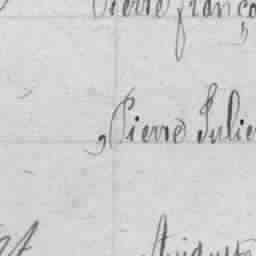 Pierre franço
, Pierre Julie
et Auguste